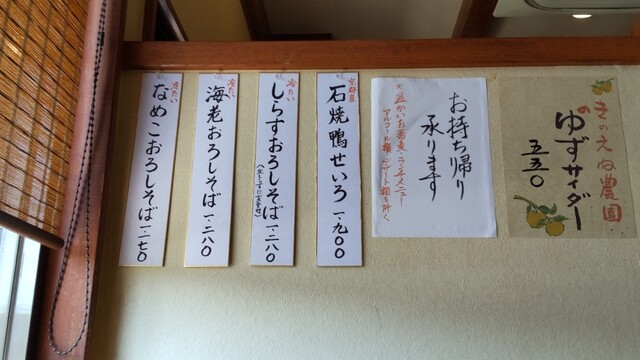 きのえね農園
の
ゆずサイダー
五五〇
お持ち帰り
承ります
※温かいお蕎麦・ランチメニュー
アルコール類・デザート類を除く
京鴨
石焼鴨せいろ 一、九〇〇
冷たい
しらすおろしそば 一、二八〇
冷たい
海老おろしそば 一、二八〇
冷たい
なめこおろしそば 一、一七〇